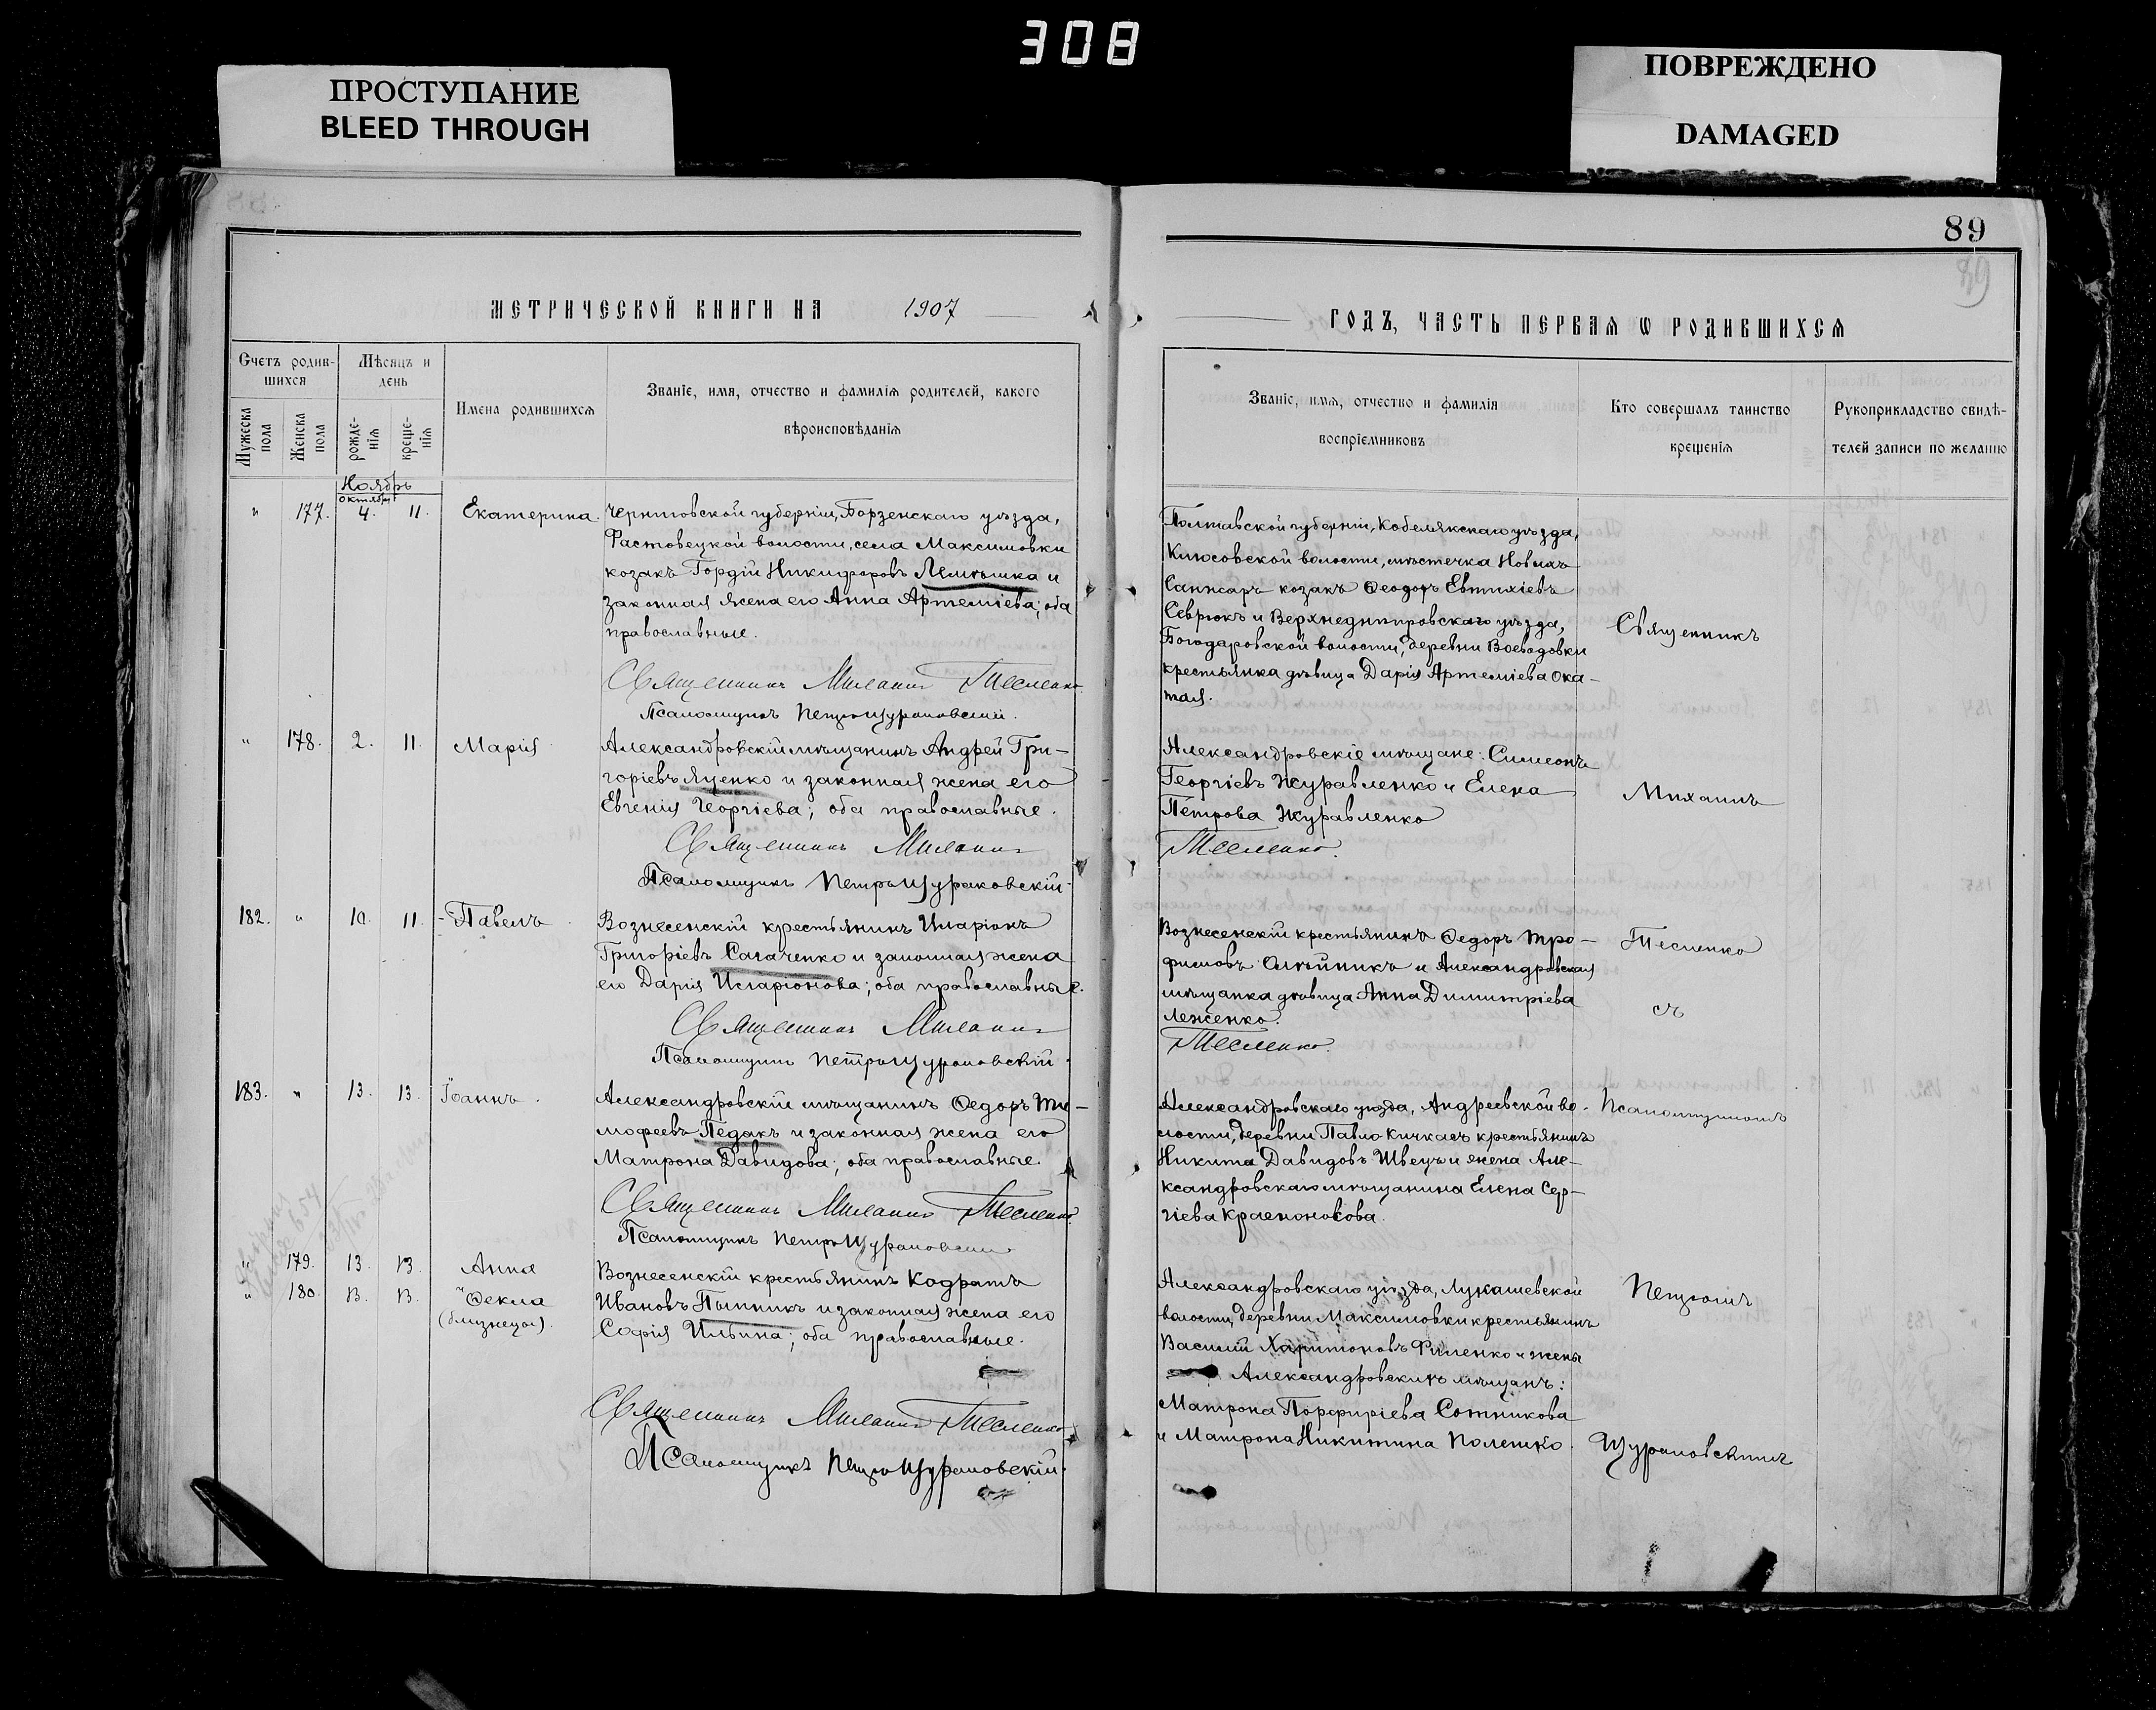 308
ПРОСТУПАНИЕ
BLEED THROUGH
ПОВРЕЖДЕНО
DAMAGED
89
89
МЕТРИЧЕСКОЙ КНИГИ НА 1907
Счетъ родив-
шихся
Мѣсяцъ и
день
Мужеска
пола
Женска
пола
рожде-
нія
креще-
нія
Имена родившихся
Званіе, имя, отчество и фамилія родителей, какого
вѣроисповѣданія
Ноябрь
октября
" 177. 4. 11. Екатерина.
Черниговской губерніи, Борзенскаго уѣзда,
Фастовецкой волости, села Максимовки
козакъ Гордій Никифоровъ Лемѣшка и
законная жена его Анна Артеміева; оба
православные.
Священникъ Михаилъ Тесленко.
Псаломщикъ Петръ Щураковскій.
" 178. 2. 11. Марія
Александровскій мѣщанинъ Андрей Гри-
горіевъ Яценко и законная жена его
Евгенія Георгіева; оба православные.
Священникъ Михаилъ
Псаломщикъ Петръ Щураковскій.
182. " 10. 11. Павелъ
Вознесенскій крестьянинъ Иларіонъ
Григоріевъ Сагаченко и законная жена
его Дарія Иларіонова; оба православные.
Священникъ Михаилъ
Псаломщикъ Петръ Щураковскій.
183. " 13. 13. Іоаннъ.
Александровскій мѣщанинъ Ѳедоръ Ти-
мофеевъ Педакъ и законная жена его
Матрона Давидова; оба православные.
Священникъ Михаилъ Тесленко.
Псаломщикъ Петръ Щураковскій
" 179. 13. 13. Анна
" 180. 13. 13. Ѳекла
(близнецы).
Вознесенскій крестьянинъ Кодратъ
Ивановъ Пытникъ и законная жена его
Софія Ильина; оба православные.
Священникъ Михаилъ Тесленко
Псаломщикъ Петръ Щураковскій.
ГОДЪ, ЧАСТЬ ПЕРВАЯ Ѡ РОДИВШИХСЯ
Званіе, имя, отчество и фамилія
воспріемниковъ
Кто совершалъ таинство
крещенія
Рукоприкладство свидѣ-
телей записи по желанію
Полтавской губерніи, Кобелякскаго уѣзда,
волости, мѣстечка Новыхъ
Санжаръ козакъ Ѳеодоръ Евтихіевъ
Севрюкъ и Верхнеднѣпровскаго уѣзда,
Богодаровской волости, деревни Воеводовки
крестьянка дѣвица Дарія Артеміева Ока-
тая.
Александровскіе мѣщане: Симеонъ
Георгіевъ Журавленко и Елена
Петрова Журавленко
Тесленко.
Вознесенскій крестьянинъ Ѳедоръ Тро-
фимовъ Олѣйникъ и Александровская
мѣщанка дѣвица Анна Димитріева
Леженко.
Тесленко.
Александровскаго уѣзда, Андреевской во-
лости, деревни Павло Кичкасъ крестьянинъ
Никита Давидовъ Швецъ и жена Але-
ксандровскаго мѣщанина Елена Сер-
гіева
Александровскаго уѣзда, Лукашевской
волости, деревни Максимовки крестьянинъ
Василій Харитоновъ Филенко и жены
Александровскихъ мѣщанъ:
Матрона Порфиріева Сотникова
и Матрона Никитина Полешко.
Священникъ
Михаилъ
Тесленко
съ
Псаломщикомъ
Петромъ
Щураковскимъ